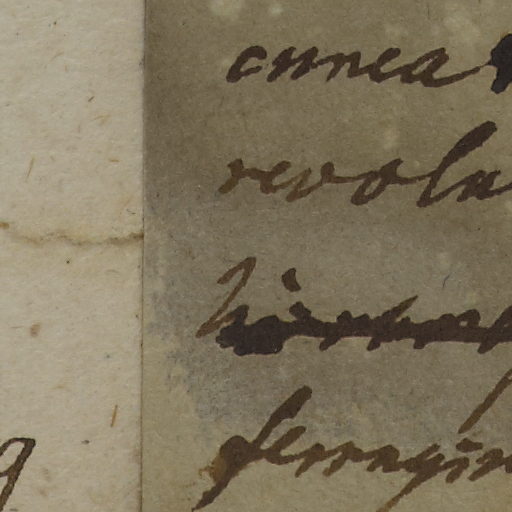 cunea
revolu
ferrugin